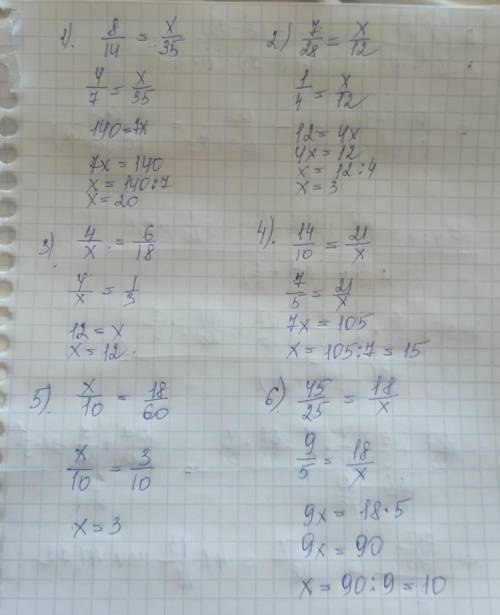 1). 8/14 = x/35
4/7 = x/35
140=7x
7x = 140
x = 140:7
x = 20
2) 7/28 = x/12
1/4 = x/12
12 = 4x
4x = 12
x = 12:4
x = 3
3) 4/x = 6/18
4/x = 1/3
12 = x
x = 12.
4). 14/10 = 21/x
7/5 = 21/x
7x = 105
x = 105:7 = 15
5) x/10 = 18/60
x/10 = 3/10
x = 3
6) 45/25 = 18/x
9/5 = 18/x
9x = 18·5
9x = 90
x = 90:9 = 10